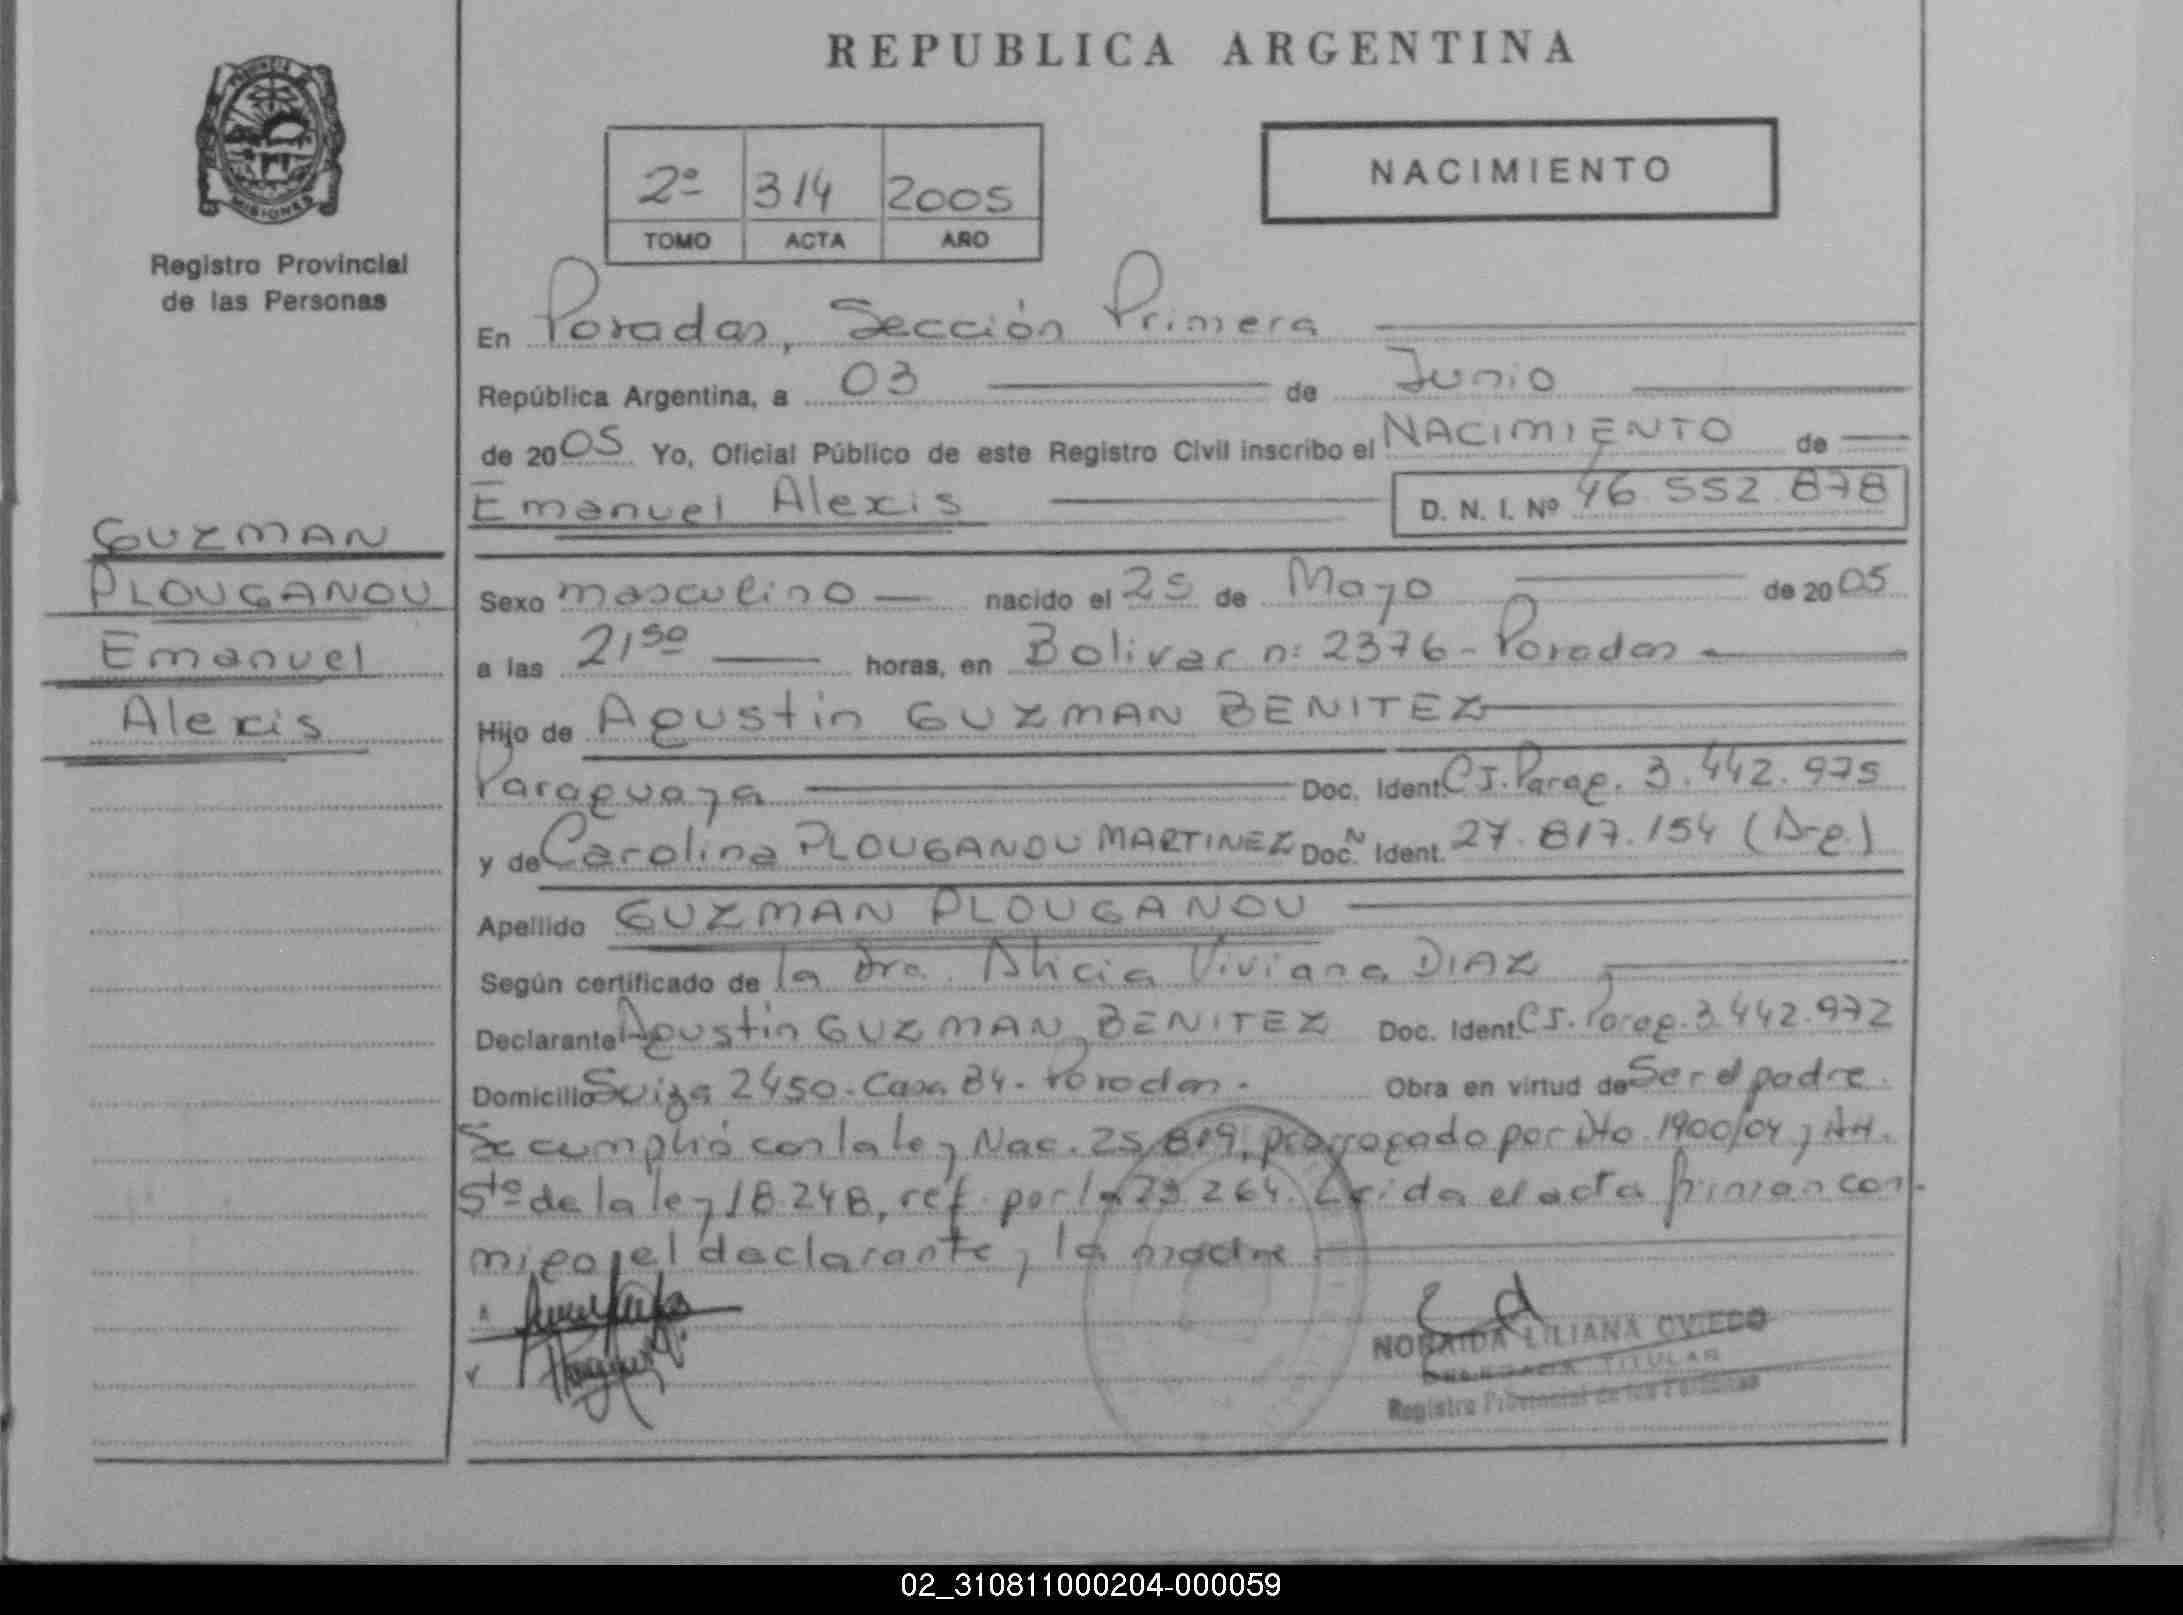 REPUBLICA ARGENTINA
PROVINCIA
MISIONES
Registro Provincial
de las Personas
2º 314 2005
TOMO ACTA AÑO
NACIMIENTO
En Posadas, Sección Primera
República Argentina, a 03 de Junio
de 2005 Yo, Oficial Público de este Registro Civil inscribo el NACIMIENTO de
Emanuel Alexis D. N. I. Nº 46.552.878
GUZMAN
PLOUGANOU
Emanuel
Alexis
Sexo masculino nacido el 25 de Mayo de 2005
a las 21⁵⁰ horas, en Bolivar nº 2376 - Posadas
Hijo de Agustin GUZMAN BENITEZ
Paraguaya Doc. Ident. C.I. Parag. 3.442.975
y de Carolina PLOUGANOU MARTINEZ Doc. Ident. 27.817.154 (Arg.)
Apellido GUZMAN PLOUGANOU
Según certificado de la Dra. Alicia Viviana DIAZ
Declarante Agustin GUZMAN BENITEZ Doc. Ident. C.I. Parag. 3.442.972
Domicilio Suiza 2450 - Casa 84 - Posadas. Obra en virtud de Ser el padre.
Se cumplió con la ley Nac. 25.819, prorrogado por Dto. 1900/04 y Art.
5to de la ley 18.248, ref. por la 23.264. Leida el acta firman con-
migo, el declarante y la madre
NORAIDA LILIANA OVIEDO
TITULAR
Registro Provincial de las Personas
02_310811000204-000059